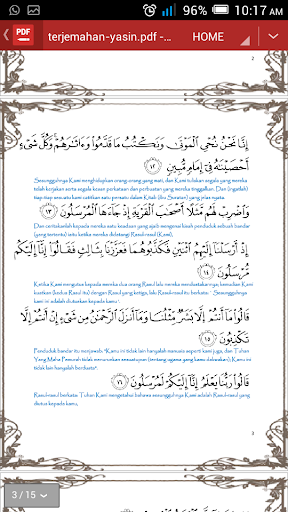 80% 10:17 AM
PDF terjemahan-yasin.pdf -... HOME
2
إِنَّا نَحْنُ نُحْيِ الْمَوْتَىٰ وَنَكْتُبُ مَا قَدَّمُوا وَءَاثَارَهُمْ وَكُلَّ شَىْءٍ
أَحْصَيْنَاهُ فِى إِمَامٍ مُّبِينٍ ١٢
Sesungguhnya Kami menghidupkan orang-orang yang mati, dan Kami tuliskan segala yang mereka
telah kerjakan serta segala kesan perkataan dan perbuatan yang mereka tinggalkan. Dan (ingatlah)
tiap-tiap sesuatu kami catitkan satu persatu dalam Kitab (ibu Suratan) yang jelas nyata.
وَاضْرِبْ لَهُم مَّثَلًا أَصْحَابَ الْقَرْيَةِ إِذْ جَاءَهَا الْمُرْسَلُونَ ١٣
Dan ceritakanlah kepada mereka satu keadaan yang ajaib mengenai kisah penduduk sebuah bandar
(yang tertentu) iaitu ketika mereka didatangi Rasul-rasul (Kami),
إِذْ أَرْسَلْنَا إِلَيْهِمُ اثْنَيْنِ فَكَذَّبُوهُمَا فَعَزَّزْنَا بِثَالِثٍ فَقَالُوا إِنَّا إِلَيْكُم
مُّرْسَلُونَ ١٤
Ketika Kami mengutus kepada mereka dua orang Rasul lalu mereka mendustakannya; kemudian Kami
kuatkan (kedua Rasul itu) dengan Rasul yang ketiga, lalu Rasul-rasul itu berkata: ` Sesungguhnya
kami ini adalah diutuskan kepada kamu'.
قَالُوا مَا أَنتُمْ إِلَّا بَشَرٌ مِّثْلُنَا وَمَا أَنزَلَ الرَّحْمَٰنُ مِن شَىْءٍ إِنْ أَنتُمْ إِلَّا
تَكْذِبُونَ ١٥
Penduduk bandar itu menjawab: "Kamu ini tidak lain hanyalah manusia seperti kami juga, dan Tuhan
Yang Maha Pemurah tidak menurunkan sesuatupun (tentang ugama yang kamu dakwakan); Kamu ini
tidak lain hanyalah berdusta".
قَالُوا رَبُّنَا يَعْلَمُ إِنَّا إِلَيْكُمْ لَمُرْسَلُونَ ١٦
Rasul-rasul berkata: Tuhan Kami mengetahui bahawa sesungguhnya Kami adalah Rasul-rasul yang
diutus kepada kamu,
3
3 / 15